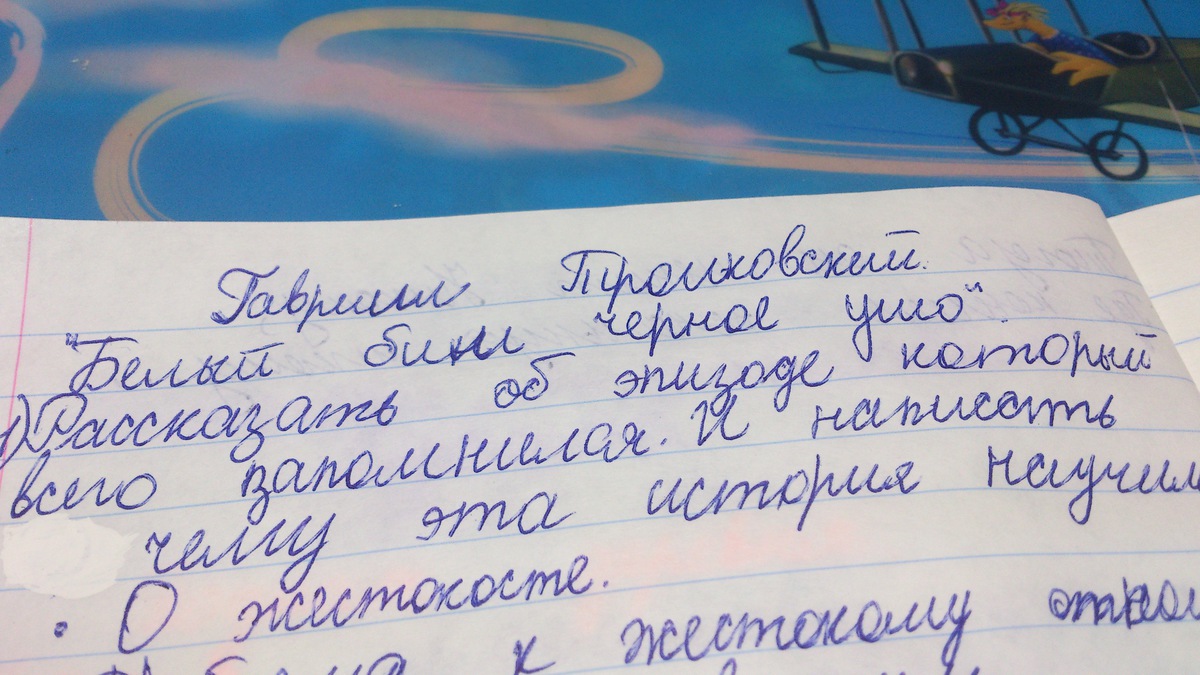 Гавриил Троиховский.
"Белый бим черное ушо".
1) Рассказать об эпизоде который
всего запомнился. И написать
чему эта история научил
• О жестокосте.
к жестокому